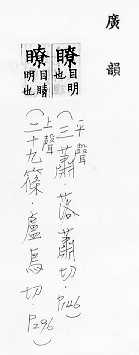 廣韻
瞭目明也
平聲(三蕭.落蕭切.P146)
瞭目睛明也
上聲(二十九篠.盧鳥切.P296)